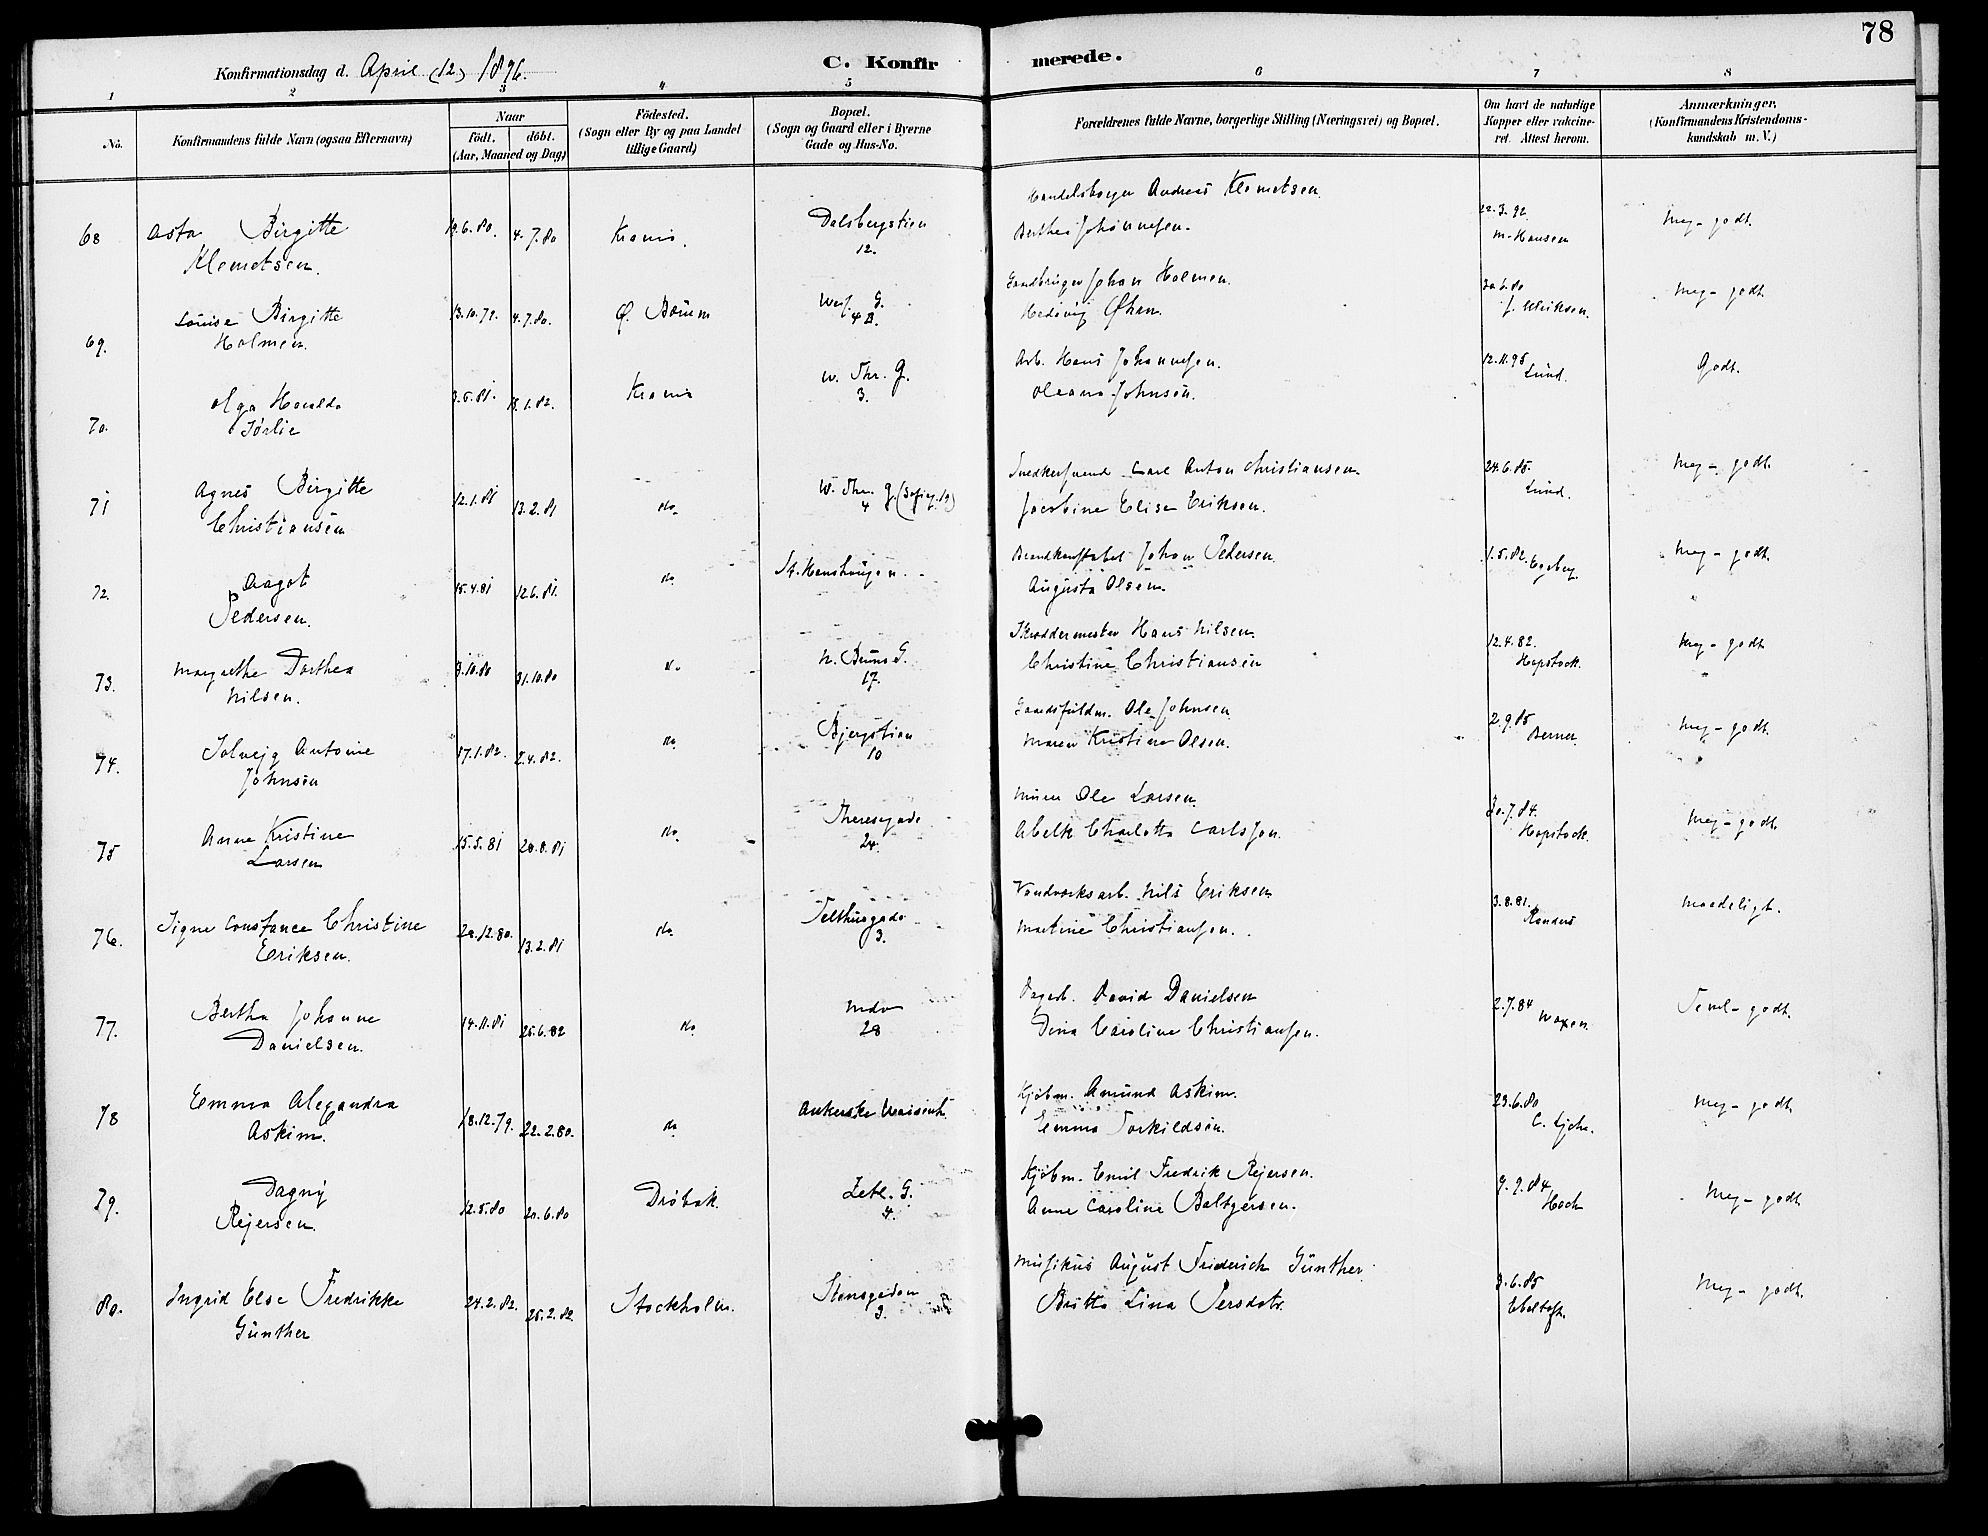 78
Konfirmationsdag d. April (12) 1896.
C. Konfirmerede.
1 2 3 4 5 6 7 8
No.
Konfirmandens fulde Navn (ogsaa Efternavn)
Naar
födt. döbt.
(Aar, Maaned og Dag)
Födested.
(Sogn eller By og paa Landet
tillige Gaard)
Bopæl.
(Sogn og Gaard eller i Byerne
Gade og Hus-No.
Forældrenes fulde Navne, borgerlige Stilling (Næringsvei) og Bopæl.
Om havt de naturlige
Kopper eller vakcine-
ret. Attest herom.
Anmærkninger.
(Konfirmandens Kristendoms-
kundskab m. V.)
68 Asta Birgitte 19.6.80. 4.7.80 Krania. Dalsbergstien
Klemetsen. 12.
Andreas Klemetsen.
Berthea Johannesen.
22.3.92.
M. Hansen
Meg. godt.
69. Louise Birgitte 13.10.79. 4.7.80. Ø. Bærum
Holmen. 4 B.
Johan Holmen.
Hedevig
Meg. godt.
70. Olga Haralda 3.5.81. Krania W. Thr. G.
Sørlie 3.
Arb. Hans Johannesen.
Oleana Johnsen.
12.11.95
Lund.
Godt.
71 Agnes Birgitte 12.1.81 13.2.81 do. W. Thr. G. (Sofieg. 19)
Christiansen 4
Snedkersvend Carl Anton Christiansen.
Jacobine Elise Eriksen.
24.6.85.
Lund.
Meg. godt.
72. Aagot 15.4.81 12.6.81. do St. Hanshaugen.
Pedersen.
Brandkonstabel Johan Pedersen
Augusta Olsen.
1.5.82. Egeberg.
Meg. godt.
73. Margrethe Dorthea 3.10.80 31.10.80 do N. Bruns G.
Nilsen. 17.
Skræddermester Hans Nilsen.
Christine Christiansen
12.4.82.
Hopstock.
Meg. godt
74. Solvejg Antonie 17.1.82. 2.4.82. do Bjergstien
Johnsen 10
Gaardsfuldm. Ole Johnsen.
Maren Kristine Olsen.
2.9.85
Berner.
Meg. godt.
75 Anna Kristine 15.5.81 28.8.81 do Theresegade
Larsen 24.
Murer Ole Larsen.
Charlotta Carlsson.
20.7.84.
Hopstock.
Meg. godt.
76. Signe Constance Christine 20.12.80. 13.2.81 do. Telthusgade
Eriksen. 3.
Vandværksarb. Nils Eriksen
Martine Christiansen.
3.8.81.
Randers
Maadeligt.
77. Bertha Johanne 14.11.81 25.6.82 do
Danielsen. 28
David Danielsen
Dina Caroline Christiansen.
2.7.84
Meg. godt.
78 Emma Alexandra 18.12.79. 22.2.80. do. Ankerske Waisenh.
Askim.
Kjøbm. Amund Askim.
Emma Torkildsen.
23.6.80
Meg. godt.
79. Dagny 12.5.80 20.6.80 Drøbak. Zetl. G.
Rejersen. 4.
Kjøbm. Emil Fredrik Rejersen.
Anne Caroline Baltzersen.
9.9.84
Hoch
Meg. godt
80. Ingrid Else Fredrikke 24.2.82. 25.2.82. Stockholm. Stensgaden
Günther 3.
Musikus August Friderich Günther
Britta Lina Persdotr.
3.6.85
Meg. godt.